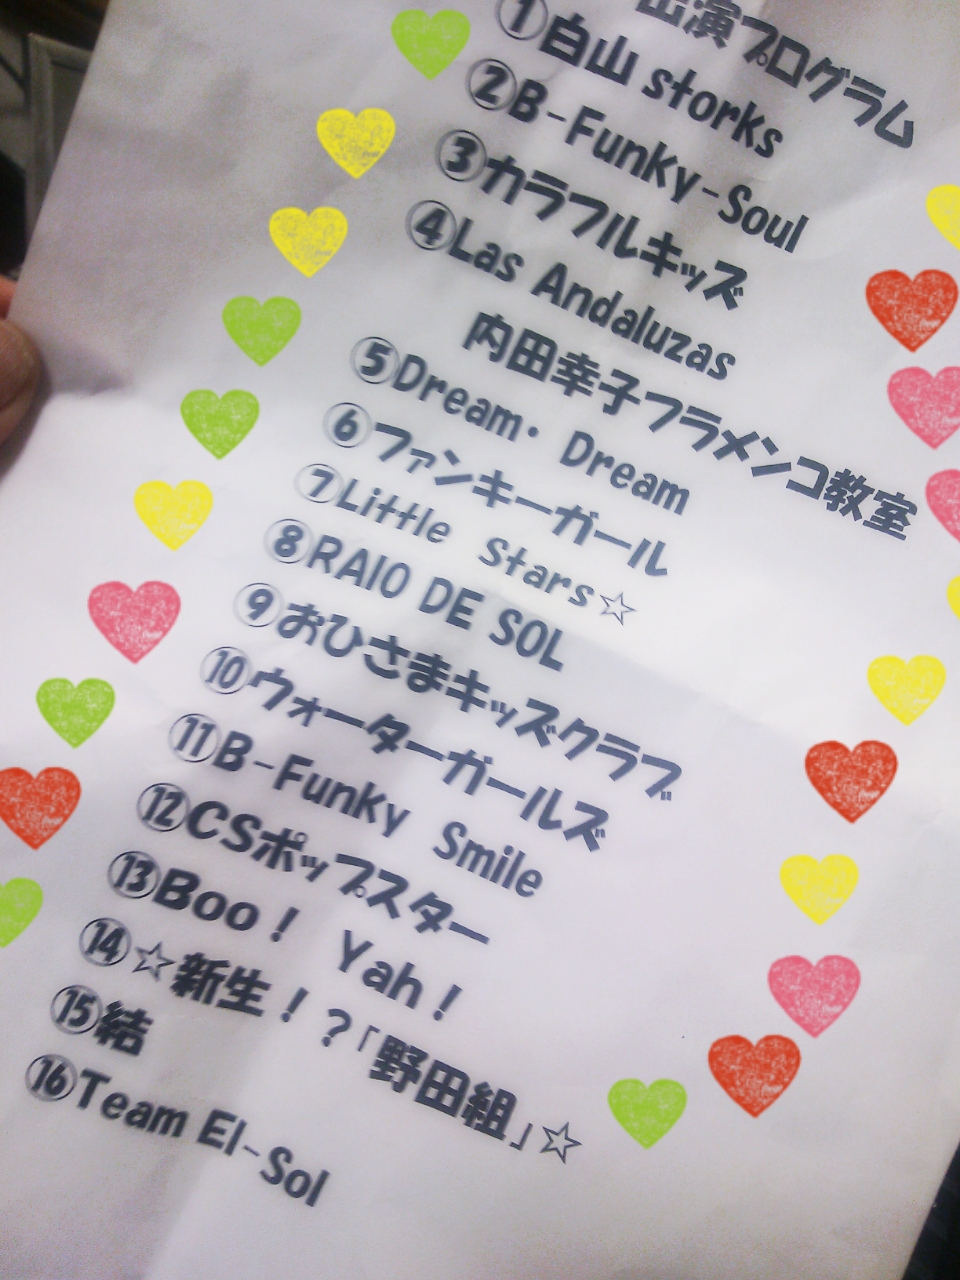 出演プログラム
①白山 storks
②B-Funky-Soul
③カラフルキッズ
④Las Andaluzas
内田幸子フラメンコ教室
⑤Dream・ Dream
⑥ファンキーガール
⑦Little Stars☆
⑧RAIO DE SOL
⑨おひさまキッズクラブ
⑩ウォーターガールズ
⑪B-Funky Smile
⑫CSポップスター
⑬Boo！ Yah！
⑭☆新生！？「野田組」☆
⑮結
⑯Team El-Sol